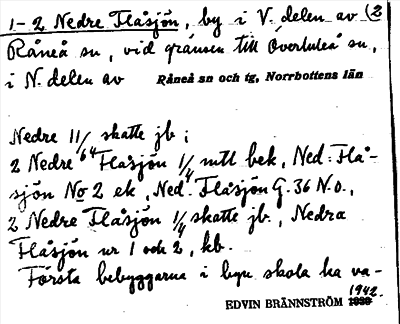 1-2 Nedre Flåsjön, by i V. delen av (2
Råneå sn, vid gränsen till Överluleå sn,
i N. delen av Råneå sn och tg, Norrbottens län
Nedre 11/64 skatte jb;
2 Nedre Flåsjön 1/4 mtl bek, Ned. Flå-
sjön No 2 ek, Ned. Flåsjön G. 36 N.O.,
2 Nedre Flåsjön 1/4 skatte jb, Nedra
Flåsjön nr 1 och 2, kb.
Första bebyggarna i byn skola ha va-
EDVIN BRÄNNSTRÖM 1942.